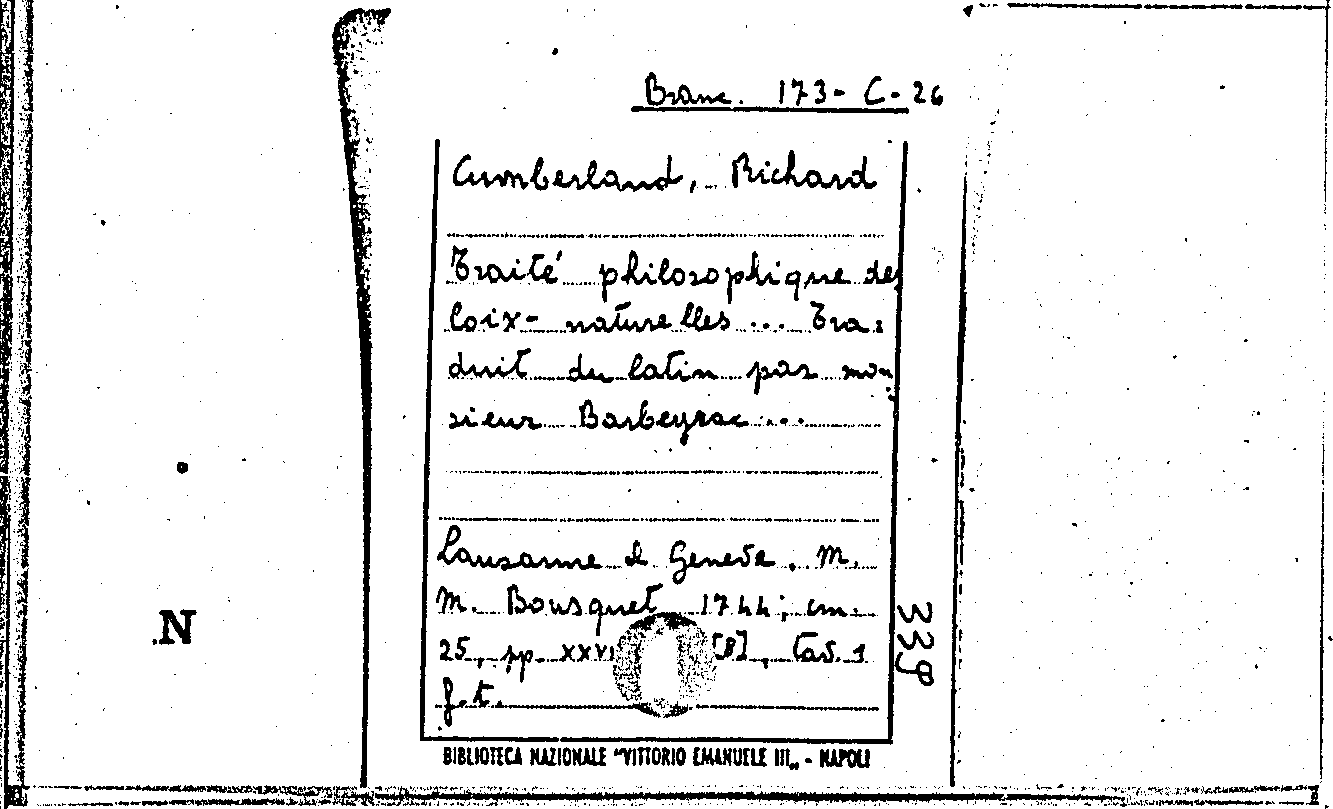 Branc. 173-C-26
Cumberland, Richard
Traité philosophique des
loix-naturelles ... Tra=
duit du latin par mon
sieur Barbeyrac ...
Lausanne & Geneve, M.
M. Bousquet 1744; cm.
25, pp. XXVI [8], tav. 1
f.t.
339
N
BIBLIOTECA NAZIONALE "VITTORIO EMANUELE III„ - NAPOLI